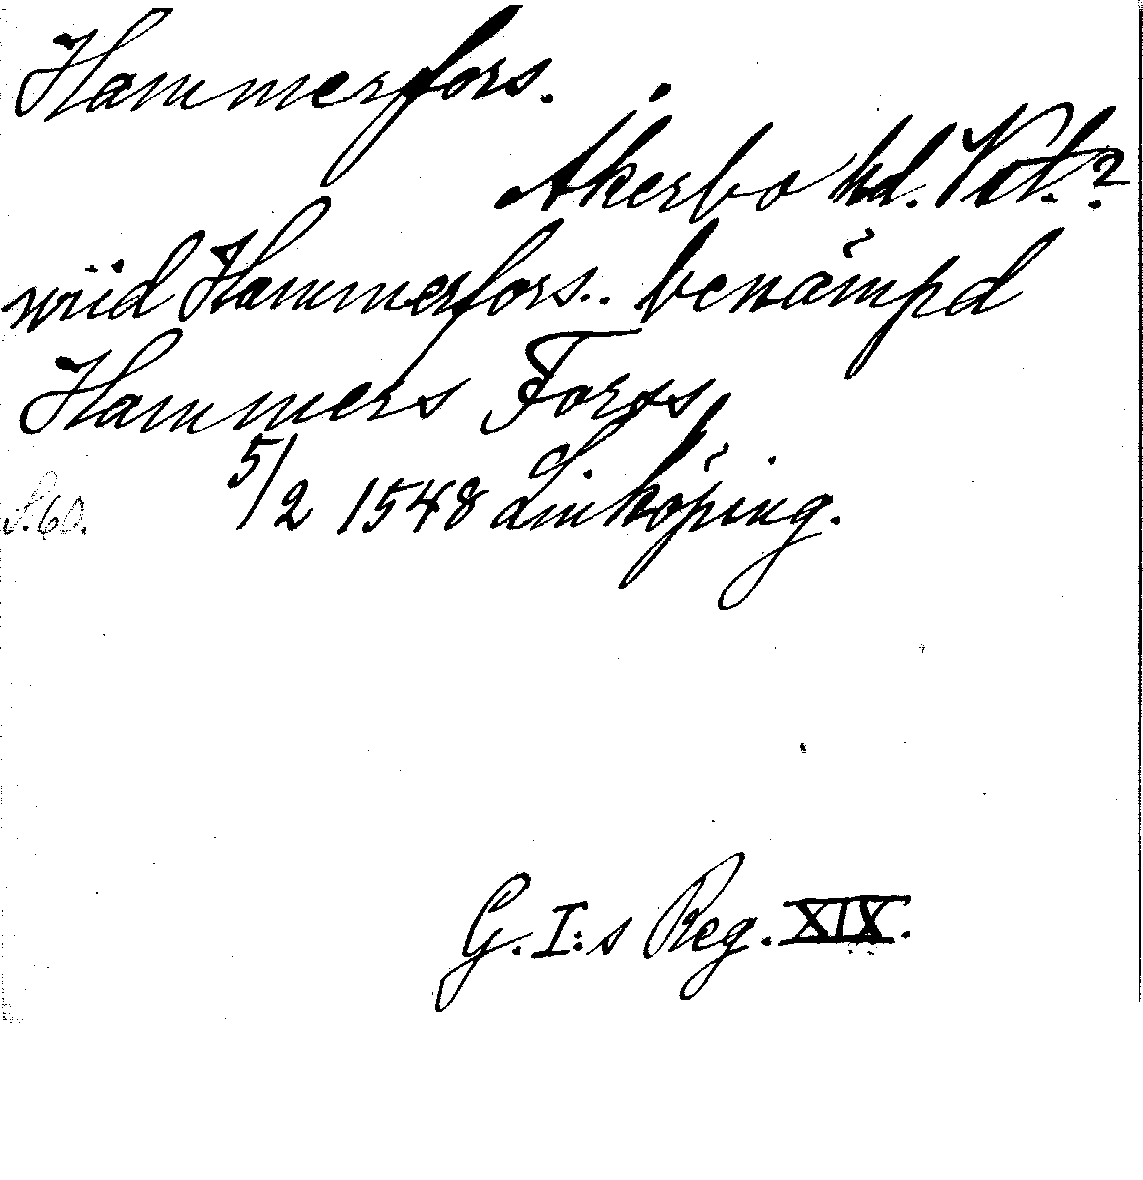 Hammerfors.
Åkerbo hd. Vstm.?
wiid Hammerfors.. benämpd
Hammers Forss
5/2 1548 Linköping.
S. 60.
G. I:s Reg. XIX.